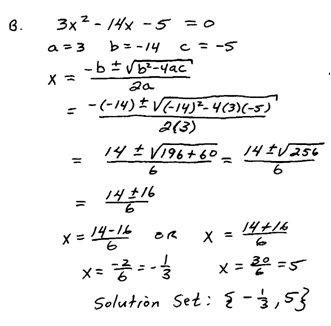 B. 3x² - 14x - 5 = 0
a = 3 b = -14 c = -5
x = (-b ± √(b²-4ac)) / 2a
= (-(-14) ± √((-14)²-4(3)(-5))) / 2(3)
= (14 ± √(196+60)) / 6 = (14 ± √256) / 6
= (14 ± 16) / 6
x = (14-16) / 6 OR x = (14+16) / 6
x = -2/6 = -1/3 x = 30/6 = 5
Solution Set: {-1/3, 5}